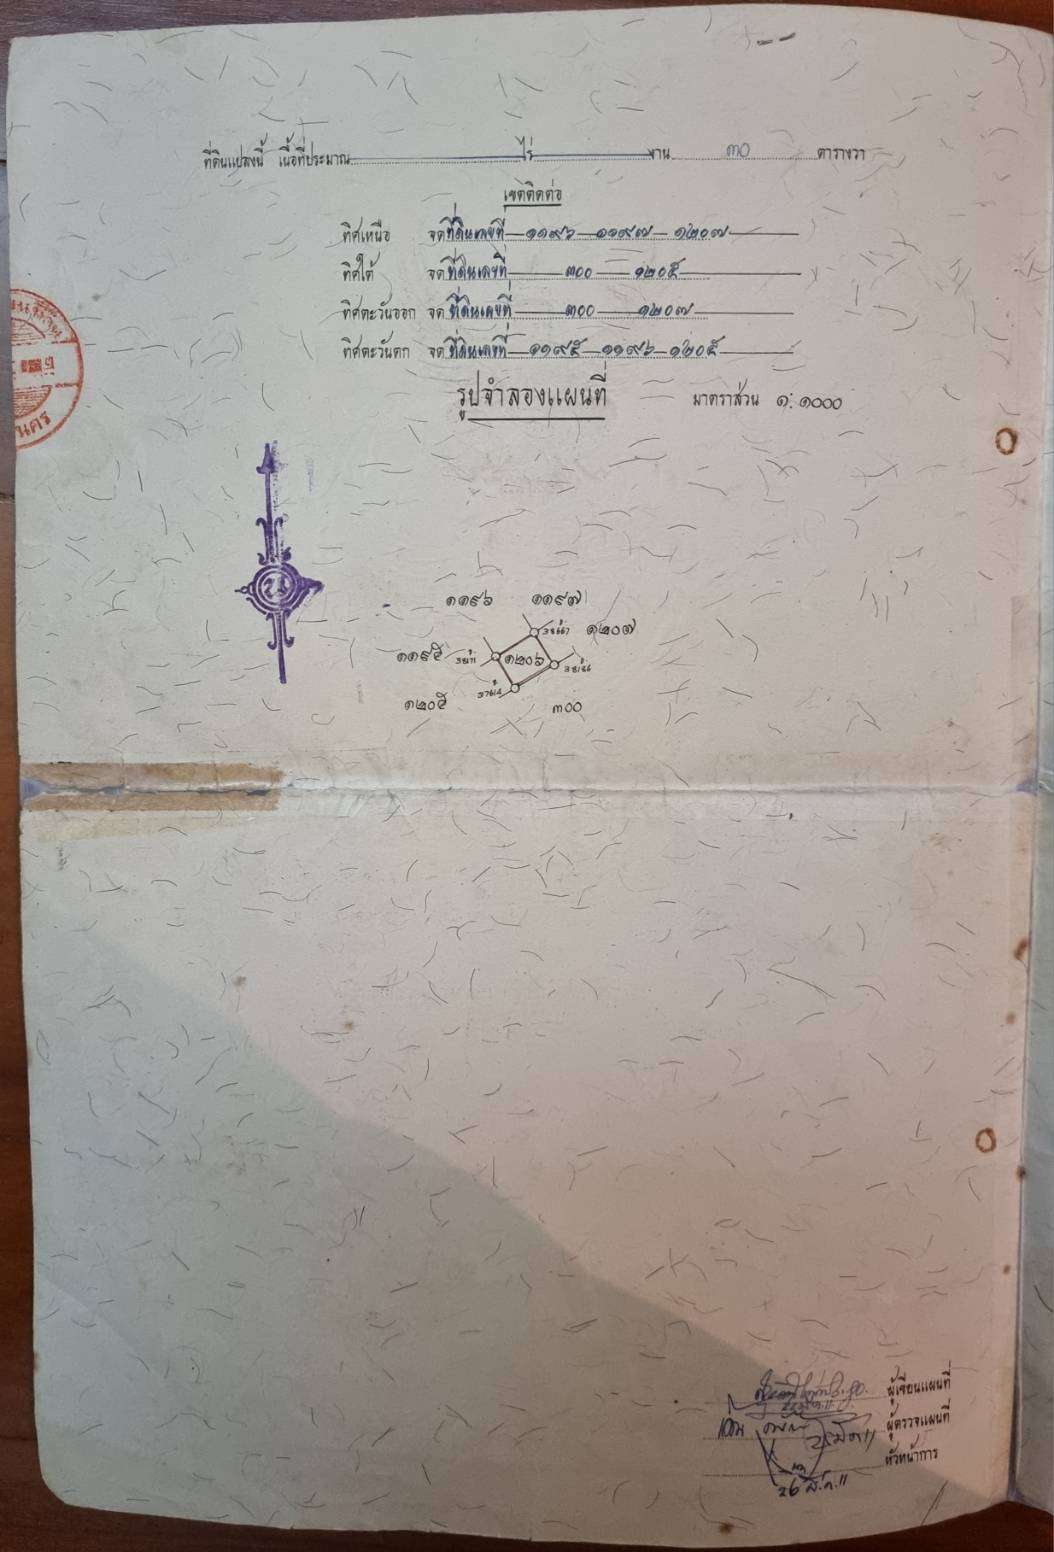 ที่ดินแปลงนี้ เนื้อที่ประมาณ ไร่ งาน ๓๐ ตารางวา
เขตติดต่อ
ทิศเหนือ จดที่ดินเลขที่ — ๑๑๙๖ — ๑๑๙๗ — ๑๒๐๗
ทิศใต้ จดที่ดินเลขที่ — ๓๐๐ — ๑๒๐๕
ทิศตะวันออก จดที่ดินเลขที่ — ๓๐๐ — ๑๒๐๗
ทิศตะวันตก จดที่ดินเลขที่ — ๑๑๙๕ — ๑๑๙๖ — ๑๒๐๕
รูปจำลองแผนที่ มาตราส่วน ๑:๑๐๐๐
นคร
น
๑๑๙๖ ๑๑๙๗
๑๒๐๗
๑๑๙๕ ๑๒๐๖
๑๒๐๕ ๓๐๐
ผู้เขียนแผนที่
ผู้ตรวจแผนที่
หัวหน้าการ
26 ส.ค. 11